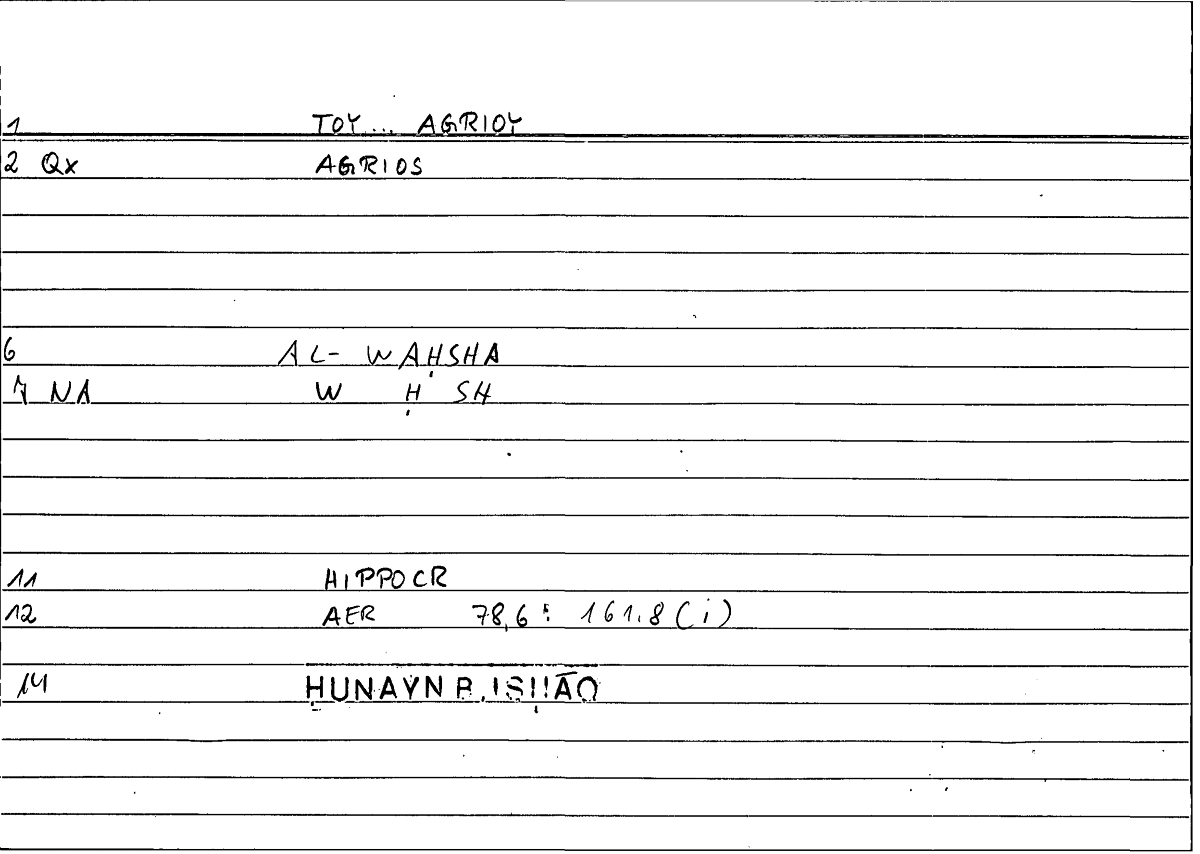 1 TOY ... AGRIOY
2 Qx AGRIOS
6 AL- WAḤSHA
7 NA W Ḥ SH
11 HIPPOCR
12 AER 78,6 : 161.8 (i)
14 ḤUNAYN B. ISḤĀQ